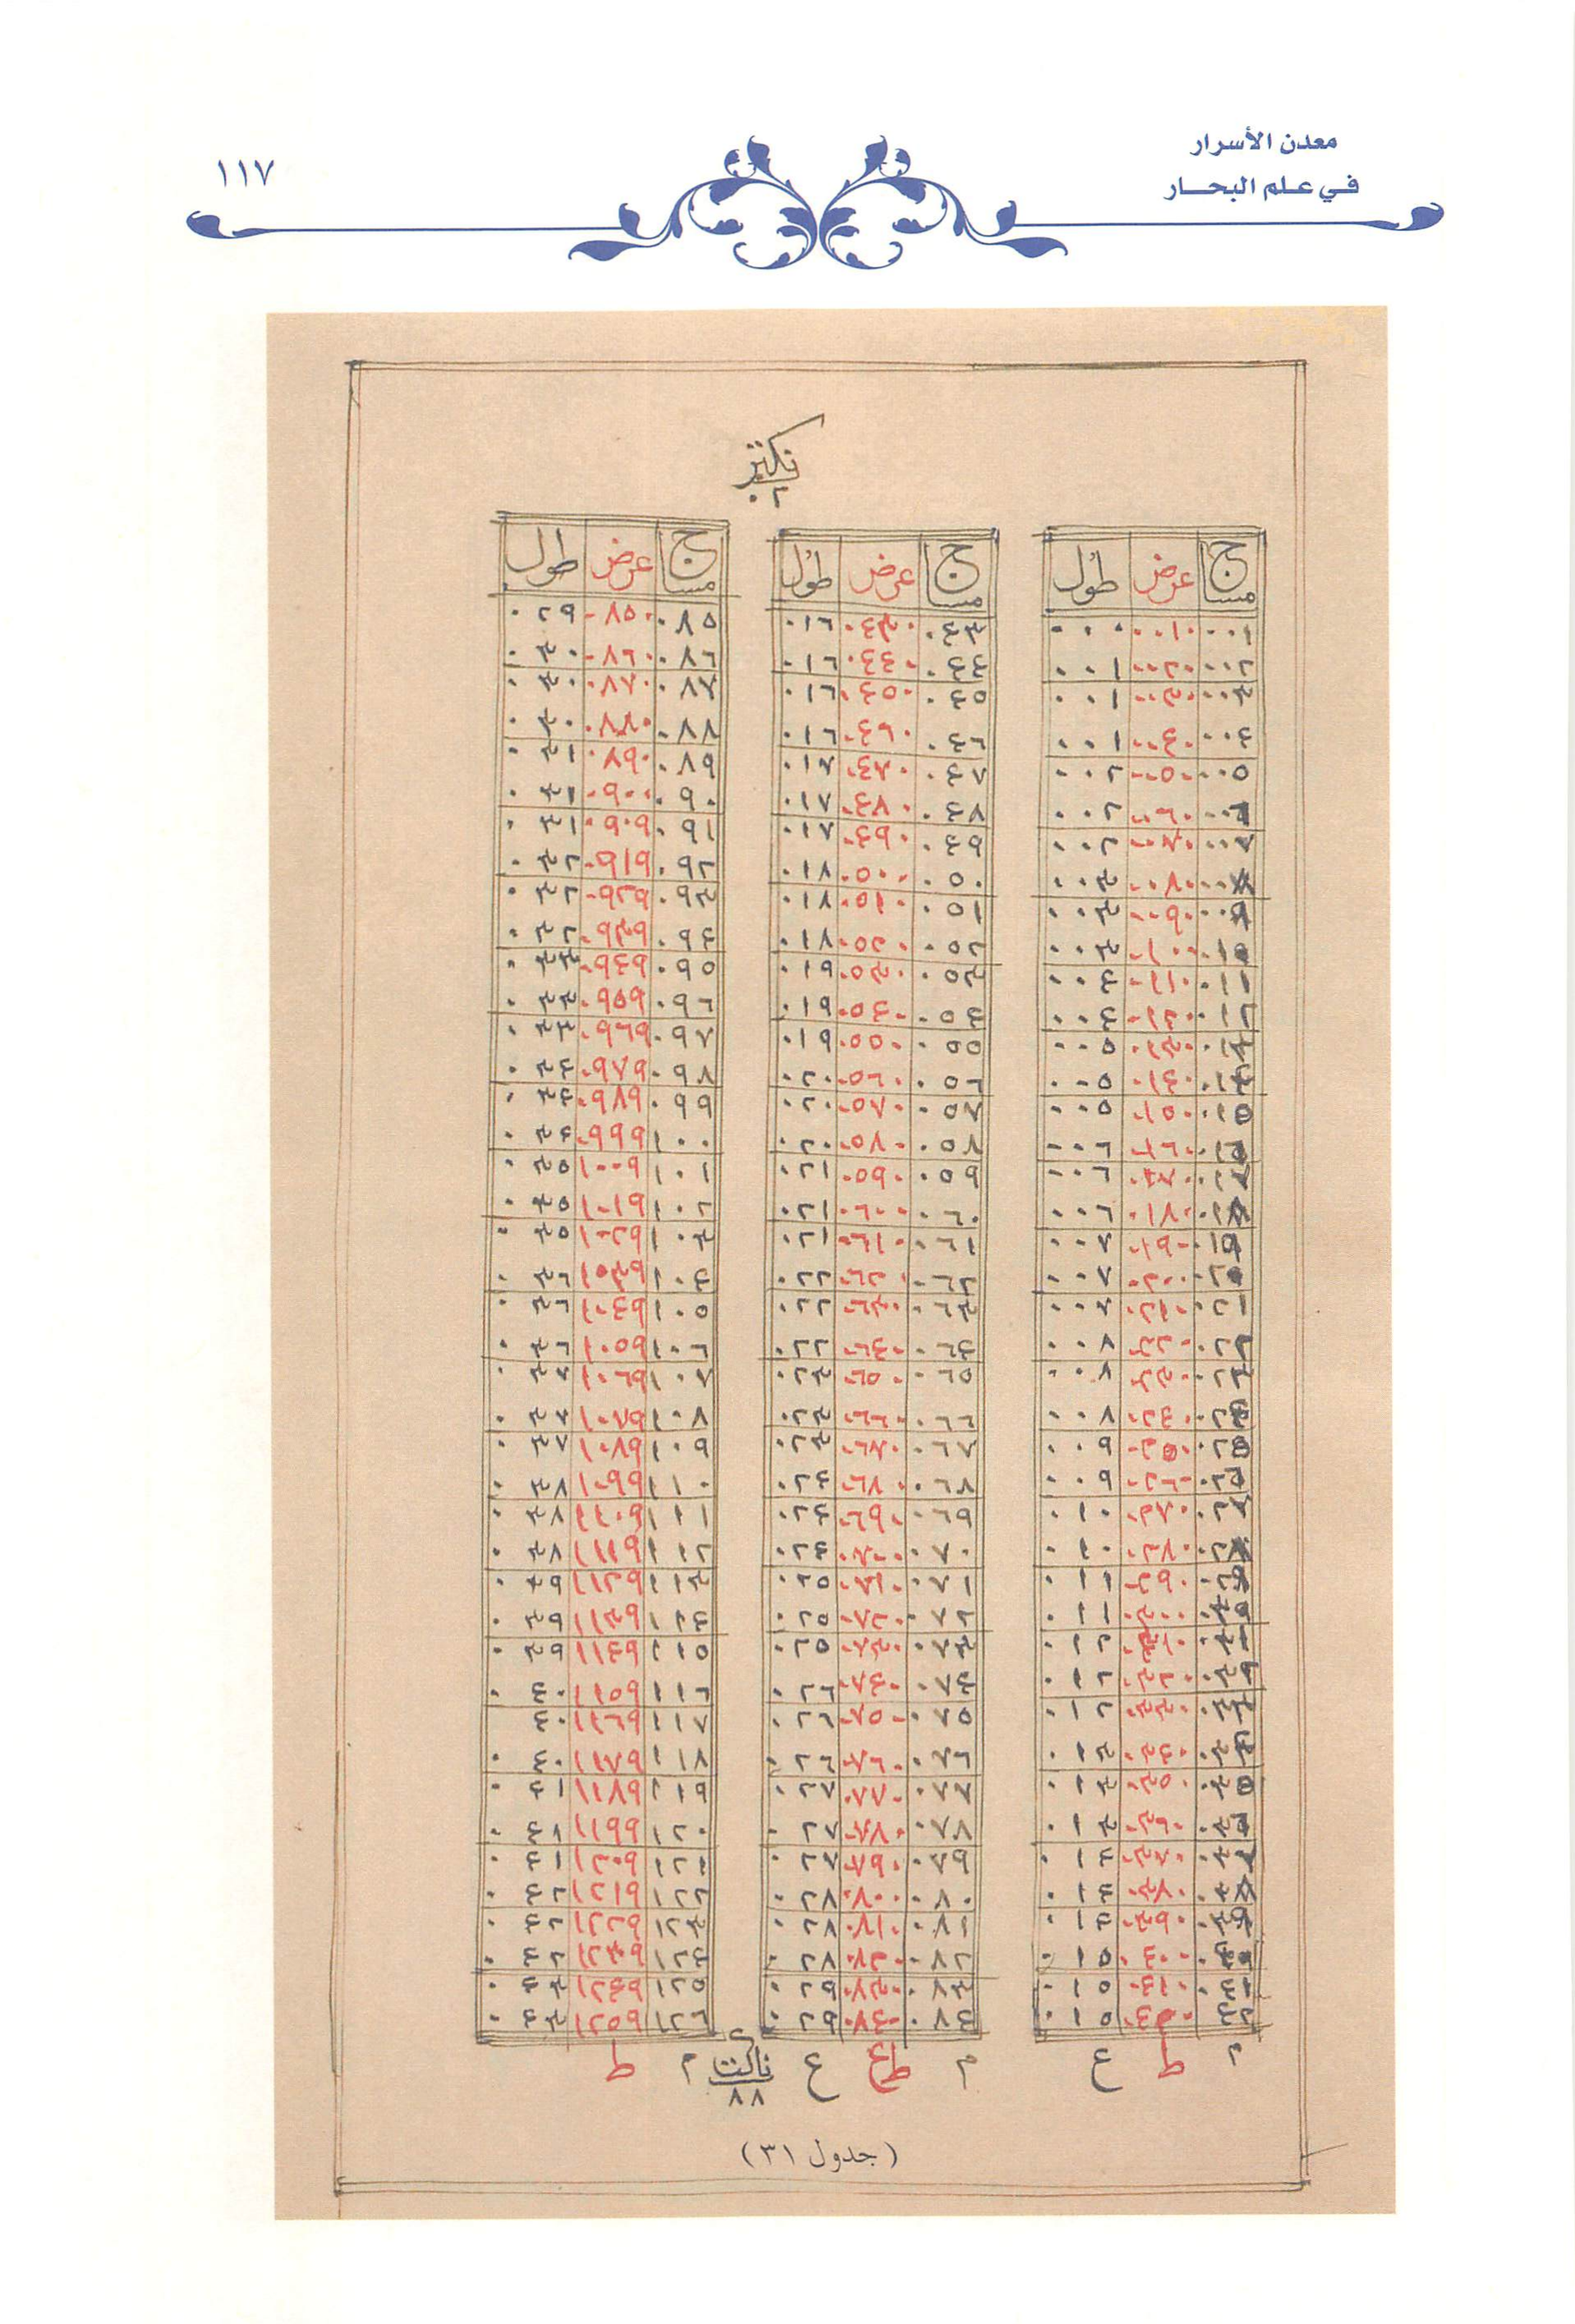 معدن الأسرار
في علم البحار
١١٧
٠٢
مساج عرض طول
٠٠١ ٠٠١٠ ٠٠٠
٠٠٢ ٠٠٢٠ ٠٠١
٠٠٣ ٠٠٣٠ ٠٠١
٠٠٤ ٠٠٤٠ ٠٠١
٠٠٥ ٠٠٥٠ ٠٠٢
٠٠٦ ٠٠٦٠ ٠٠٢
٠٠٧ ٠٠٧٠ ٠٠٢
٠٠٨ ٠٠٨٠ ٠٠٣
٠٠٩ ٠٠٩٠ ٠٠٣
٠١٠ ٠١٠٠ ٠٠٣
٠١١ ٠١١٠ ٠٠٤
٠١٢ ٠١٢٠ ٠٠٤
٠١٣ ٠١٣٠ ٠٠٥
٠١٤ ٠١٤٠ ٠٠٥
٠١٥ ٠١٥٠ ٠٠٥
٠١٦ ٠١٦٠ ٠٠٦
٠١٧ ٠١٧٠ ٠٠٦
٠١٨ ٠١٨٠ ٠٠٦
٠١٩ ٠١٩٠ ٠٠٧
٠٢٠ ٠٢٠٠ ٠٠٧
٠٢١ ٠٢١٠ ٠٠٧
٠٢٢ ٠٢٢٠ ٠٠٨
٠٢٣ ٠٢٣٠ ٠٠٨
٠٢٤ ٠٢٤٠ ٠٠٨
٠٢٥ ٠٢٥٠ ٠٠٩
٠٢٦ ٠٢٦٠ ٠٠٩
٠٢٧ ٠٢٧٠ ٠١٠
٠٢٨ ٠٢٨٠ ٠١٠
٠٢٩ ٠٢٩٠ ٠١١
٠٣٠ ٠٣٠٠ ٠١١
٠٣١ ٠٣١٠ ٠١٢
٠٣٢ ٠٣٢٠ ٠١٢
٠٣٣ ٠٣٣٠ ٠١٢
٠٣٤ ٠٣٤٠ ٠١٣
٠٣٥ ٠٣٥٠ ٠١٣
٠٣٦ ٠٣٦٠ ٠١٣
٠٣٧ ٠٣٧٠ ٠١٤
٠٣٨ ٠٣٨٠ ٠١٤
٠٣٩ ٠٣٩٠ ٠١٤
٠٤٠ ٠٤٠٠ ٠١٥
٠٤١ ٠٤١٠ ٠١٥
٠٤٢ ٠٤٢٠ ٠١٥
م ط ع
مساج عرض طول
٠٤٣ ٠٤٣٠ ٠١٦
٠٤٤ ٠٤٤٠ ٠١٦
٠٤٥ ٠٤٥٠ ٠١٦
٠٤٦ ٠٤٦٠ ٠١٦
٠٤٧ ٠٤٧٠ ٠١٧
٠٤٨ ٠٤٨٠ ٠١٧
٠٤٩ ٠٤٩٠ ٠١٧
٠٥٠ ٠٥٠٠ ٠١٨
٠٥١ ٠٥١٠ ٠١٨
٠٥٢ ٠٥٢٠ ٠١٨
٠٥٣ ٠٥٣٠ ٠١٩
٠٥٤ ٠٥٤٠ ٠١٩
٠٥٥ ٠٥٥٠ ٠١٩
٠٥٦ ٠٥٦٠ ٠٢٠
٠٥٧ ٠٥٧٠ ٠٢٠
٠٥٨ ٠٥٨٠ ٠٢٠
٠٥٩ ٠٥٩٠ ٠٢١
٠٦٠ ٠٦٠٠ ٠٢١
٠٦١ ٠٦١٠ ٠٢١
٠٦٢ ٠٦٢٠ ٠٢٢
٠٦٣ ٠٦٣٠ ٠٢٢
٠٦٤ ٠٦٤٠ ٠٢٢
٠٦٥ ٠٦٥٠ ٠٢٣
٠٦٦ ٠٦٦٠ ٠٢٣
٠٦٧ ٠٦٧٠ ٠٢٣
٠٦٨ ٠٦٨٠ ٠٢٤
٠٦٩ ٠٦٩٠ ٠٢٤
٠٧٠ ٠٧٠٠ ٠٢٤
٠٧١ ٠٧١٠ ٠٢٥
٠٧٢ ٠٧٢٠ ٠٢٥
٠٧٣ ٠٧٣٠ ٠٢٥
٠٧٤ ٠٧٤٠ ٠٢٦
٠٧٥ ٠٧٥٠ ٠٢٦
٠٧٦ ٠٧٦٠ ٠٢٦
٠٧٧ ٠٧٧٠ ٠٢٧
٠٧٨ ٠٧٨٠ ٠٢٧
٠٧٩ ٠٧٩٠ ٠٢٧
٠٨٠ ٠٨٠٠ ٠٢٨
٠٨١ ٠٨١٠ ٠٢٨
٠٨٢ ٠٨٢٠ ٠٢٨
٠٨٣ ٠٨٣٠ ٠٢٩
٠٨٤ ٠٨٤٠ ٠٢٩
م ط ع
مساج عرض طول
٠٨٥ ٠٨٥٠ ٠٢٩
٠٨٦ ٠٨٦٠ ٠٣٠
٠٨٧ ٠٨٧٠ ٠٣٠
٠٨٨ ٠٨٨٠ ٠٣٠
٠٨٩ ٠٨٩٠ ٠٣١
٠٩٠ ٠٩٠٠ ٠٣١
٠٩١ ٠٩٠٩ ٠٣١
٠٩٢ ٠٩١٩ ٠٣٢
٠٩٣ ٠٩٢٩ ٠٣٢
٠٩٤ ٠٩٣٩ ٠٣٢
٠٩٥ ٠٩٤٩ ٠٣٣
٠٩٦ ٠٩٥٩ ٠٣٣
٠٩٧ ٠٩٦٩ ٠٣٣
٠٩٨ ٠٩٧٩ ٠٣٤
٠٩٩ ٠٩٨٩ ٠٣٤
١٠٠ ٠٩٩٩ ٠٣٤
١٠١ ١٠٠٩ ٠٣٥
١٠٢ ١٠١٩ ٠٣٥
١٠٣ ١٠٢٩ ٠٣٥
١٠٤ ١٠٣٩ ٠٣٦
١٠٥ ١٠٤٩ ٠٣٦
١٠٦ ١٠٥٩ ٠٣٦
١٠٧ ١٠٦٩ ٠٣٧
١٠٨ ١٠٧٩ ٠٣٧
١٠٩ ١٠٨٩ ٠٣٧
١١٠ ١٠٩٩ ٠٣٨
١١١ ١١٠٩ ٠٣٨
١١٢ ١١١٩ ٠٣٨
١١٣ ١١٢٩ ٠٣٩
١١٤ ١١٣٩ ٠٣٩
١١٥ ١١٤٩ ٠٣٩
١١٦ ١١٥٩ ٠٤٠
١١٧ ١١٦٩ ٠٤٠
١١٨ ١١٧٩ ٠٤٠
١١٩ ١١٨٩ ٠٤١
١٢٠ ١١٩٩ ٠٤١
١٢١ ١٢٠٩ ٠٤١
١٢٢ ١٢١٩ ٠٤٢
١٢٣ ١٢٢٩ ٠٤٢
١٢٤ ١٢٣٩ ٠٤٢
١٢٥ ١٢٤٩ ٠٤٣
١٢٦ ١٢٥٩ ٠٤٣
م ط
٨٨
(جدول ٣١)